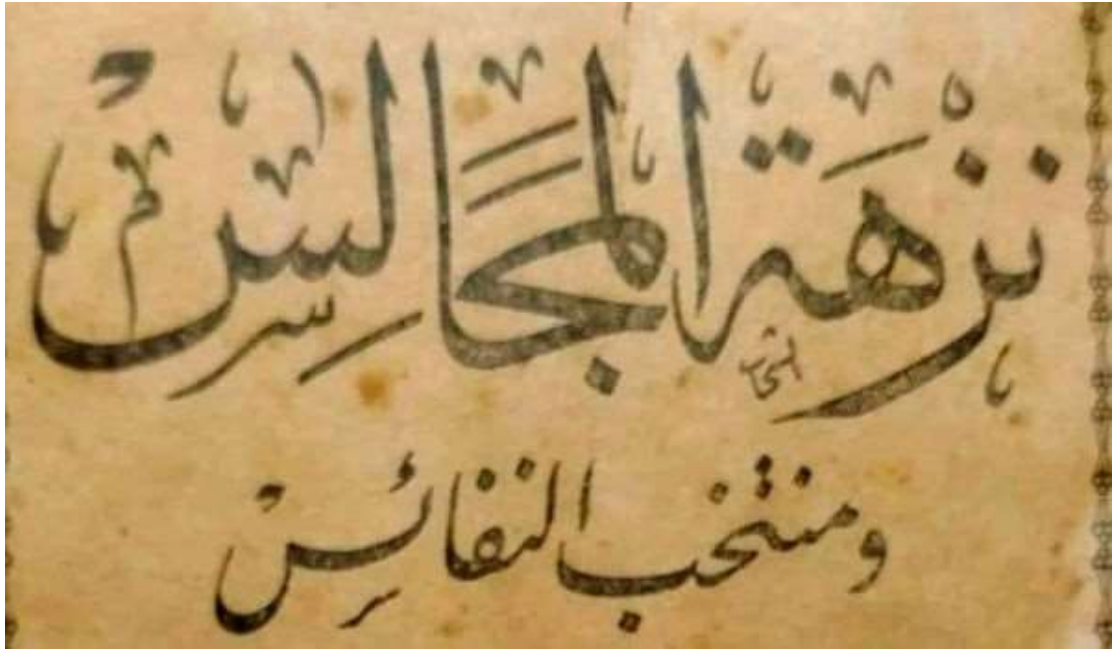 نزهة المجالس
ومنتخب النفائس